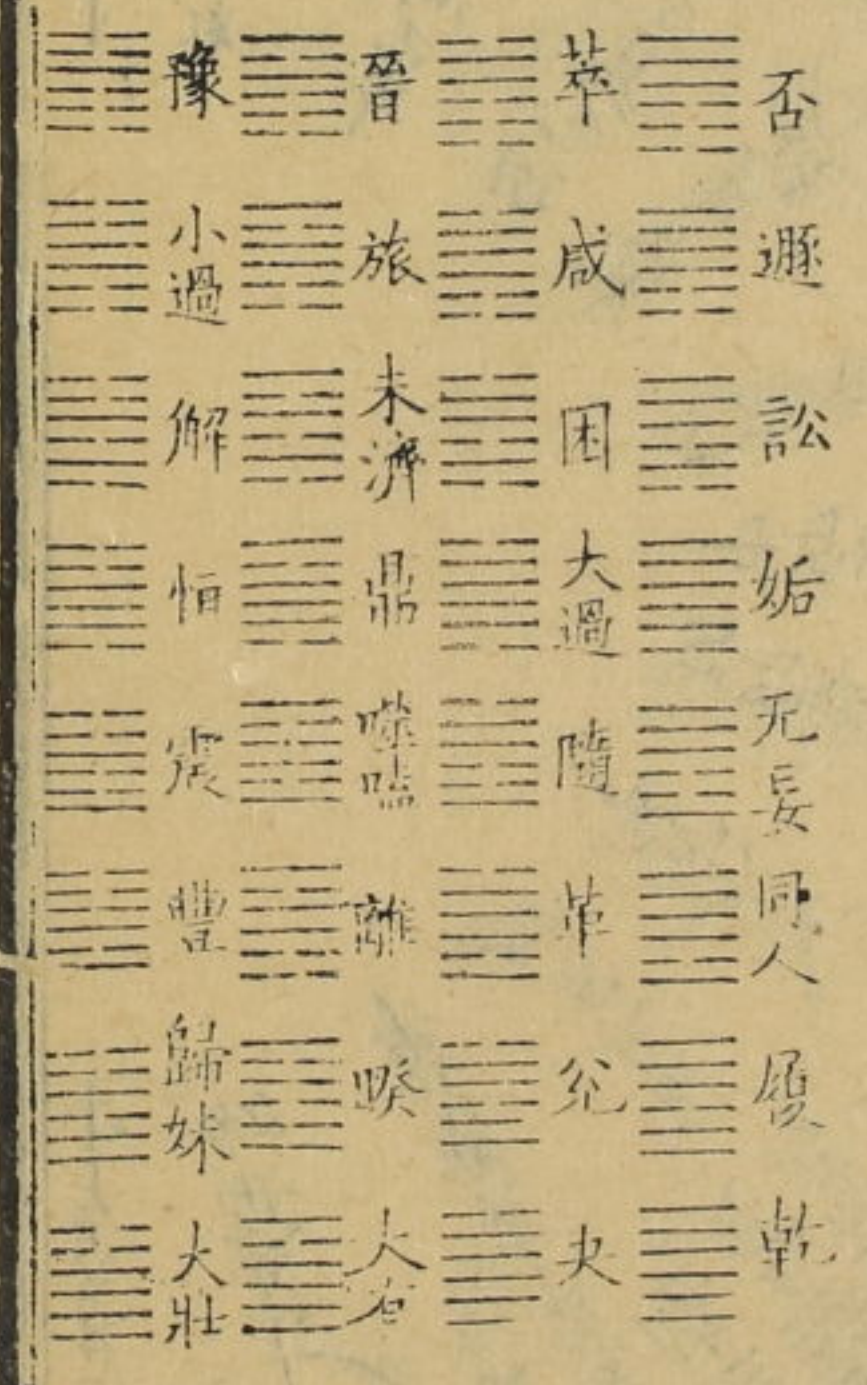 否 遯 訟 姤 无妄 同人 履 乾
萃 咸 困 大過 隨 革 兌 夬
晉 旅 未濟 鼎 噬嗑 離 睽 大有
豫 小過 解 恒 震 豐 歸妹 大壯